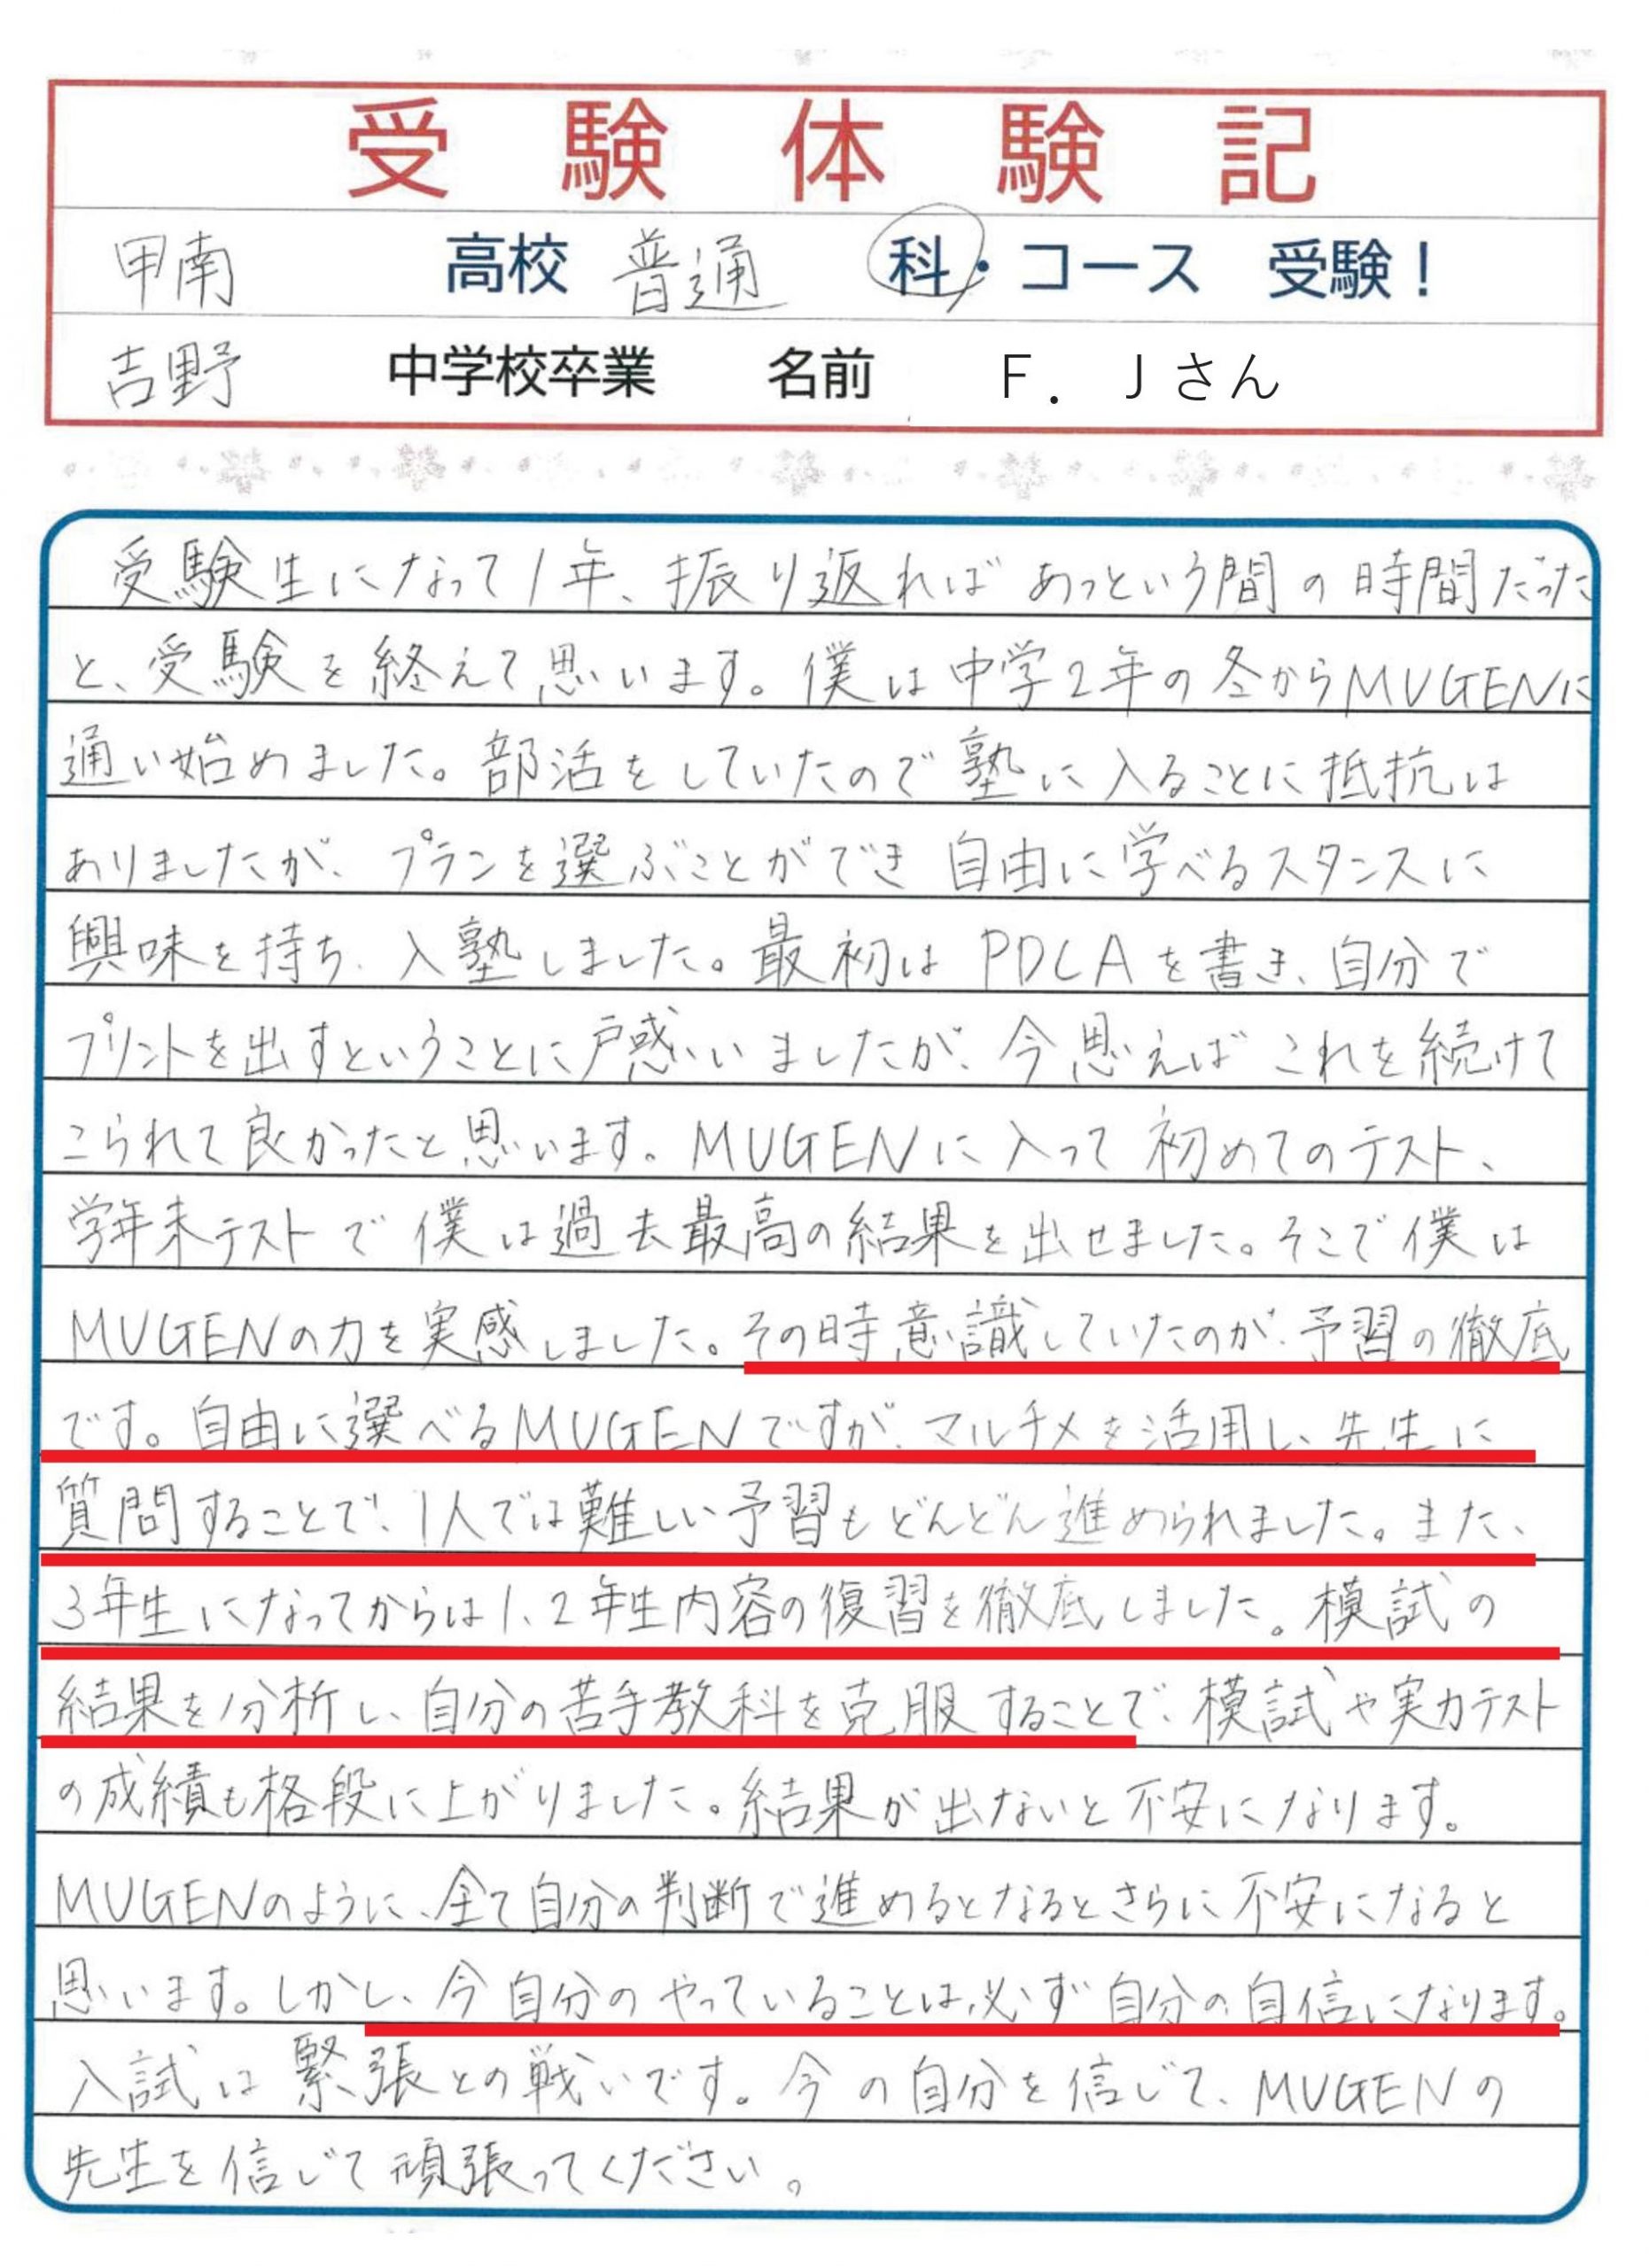 受験体験記
甲南 高校 普通 科・コース 受験！
吉野 中学校卒業 名前 F．Jさん
受験生になって1年、振り返ればあっという間の時間だった
と、受験を終えて思います。僕は中学2年の冬からMUGENに
通い始めました。部活をしていたので塾に入ることに抵抗は
ありましたが、プランを選ぶことができ自由に学べるスタンスに
興味を持ち、入塾しました。最初はPDCAを書き、自分で
プリントを出すということに戸惑いましたが、今思えばこれを続けて
こられて良かったと思います。MUGENに入って初めてのテスト、
学年末テストで僕は過去最高の結果を出せました。そこで僕は
MUGENの力を実感しました。その時意識していたのが、予習の徹底
です。自由に選べるMUGENですが、マルチメを活用し、先生に
質問することで、1人では難しい予習もどんどん進められました。また、
3年生になってからは1、2年生内容の復習を徹底しました。模試の
結果を分析し、自分の苦手教科を克服することで、模試や実力テスト
の成績も格段に上がりました。結果が出ないと不安になります。
MUGENのように、全て自分の判断で進めるとなるとさらに不安になると
思います。しかし、今自分のやっていることは必ず自分の自信になります。
入試は緊張との戦いです。今の自分を信じて、MUGENの
先生を信じて頑張ってください。